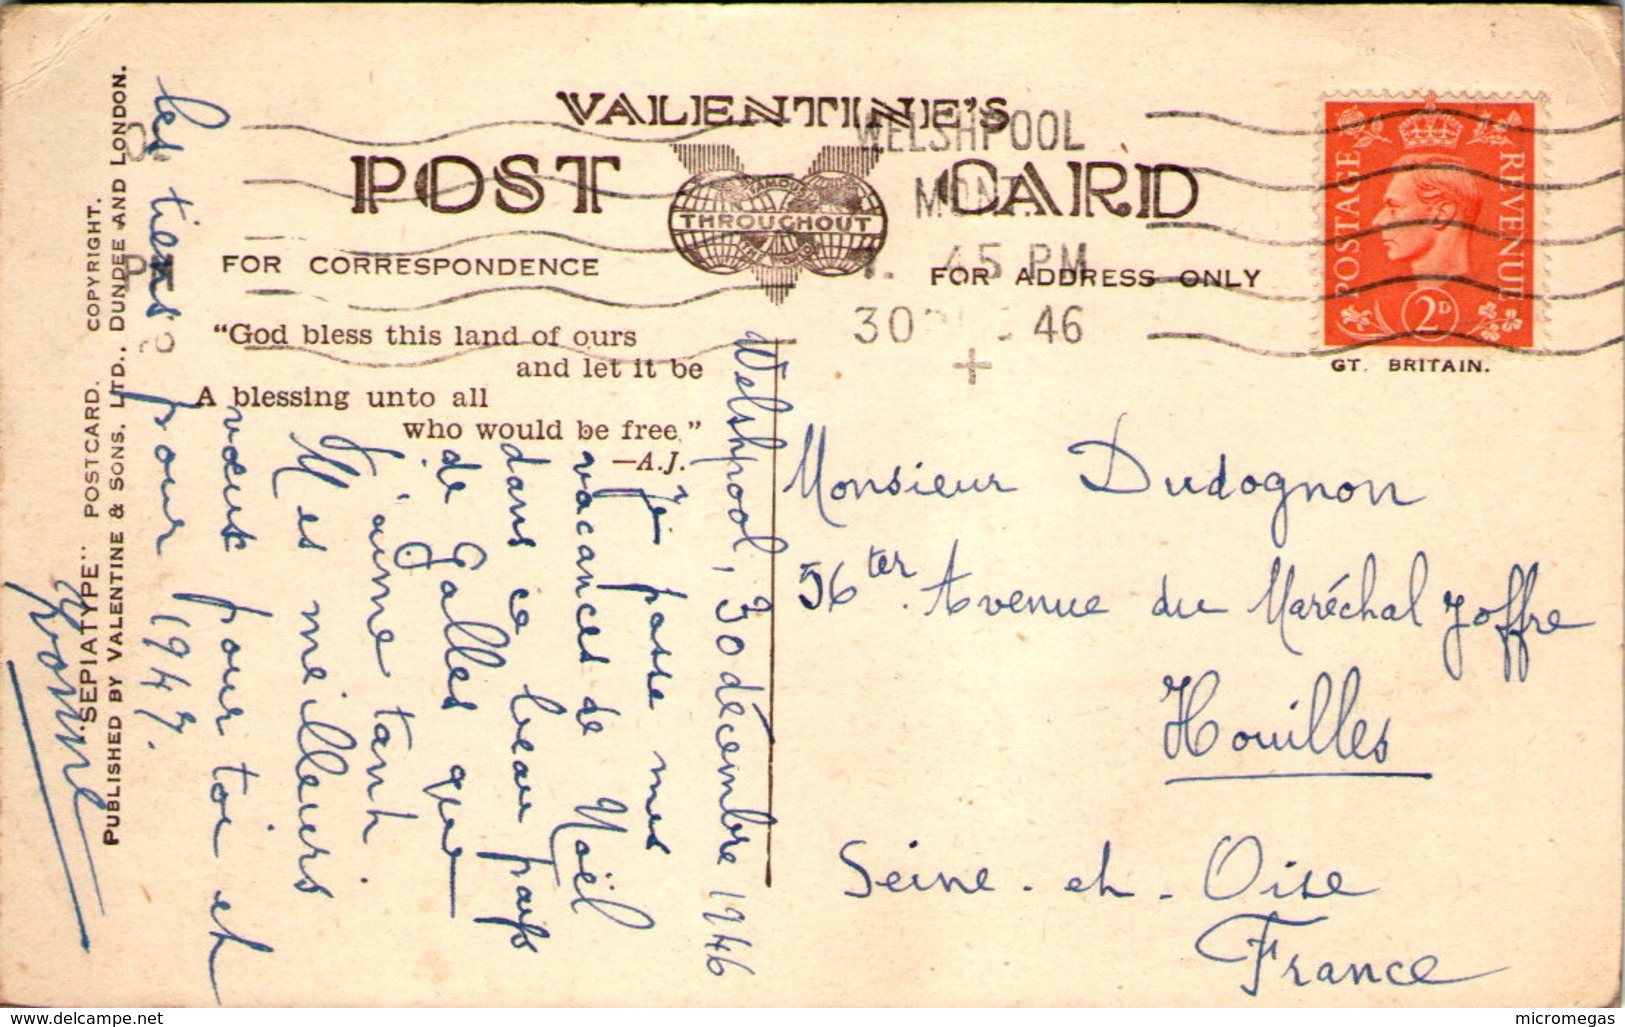 VALENTINE'S
POST CARD
FAMOUS
THROUGHOUT
THE WORLD
FOR CORRESPONDENCE
FOR ADDRESS ONLY
WELSHPOOL
MONT.
45 PM
30 46
POSTAGE REVENUE
2D
GT. BRITAIN.
"God bless this land of ours
and let it be
A blessing unto all
who would be free."
—A.J.
"SEPIATYPE" POSTCARD. COPYRIGHT.
PUBLISHED BY VALENTINE & SONS. LTD., DUNDEE AND LONDON.
Welshpool, 30 décembre 1946
Je passe mes
vacances de Noël
dans ce beau pays
de Galles que
j'aime tant.
Mes meilleurs
vœux pour toi et
les tiens pour 1947.
Yvonne
Monsieur Dudognon
56 ter. Avenue du Maréchal Joffre
Houilles
Seine-et-Oise
France
www.delcampe.net
micromegas